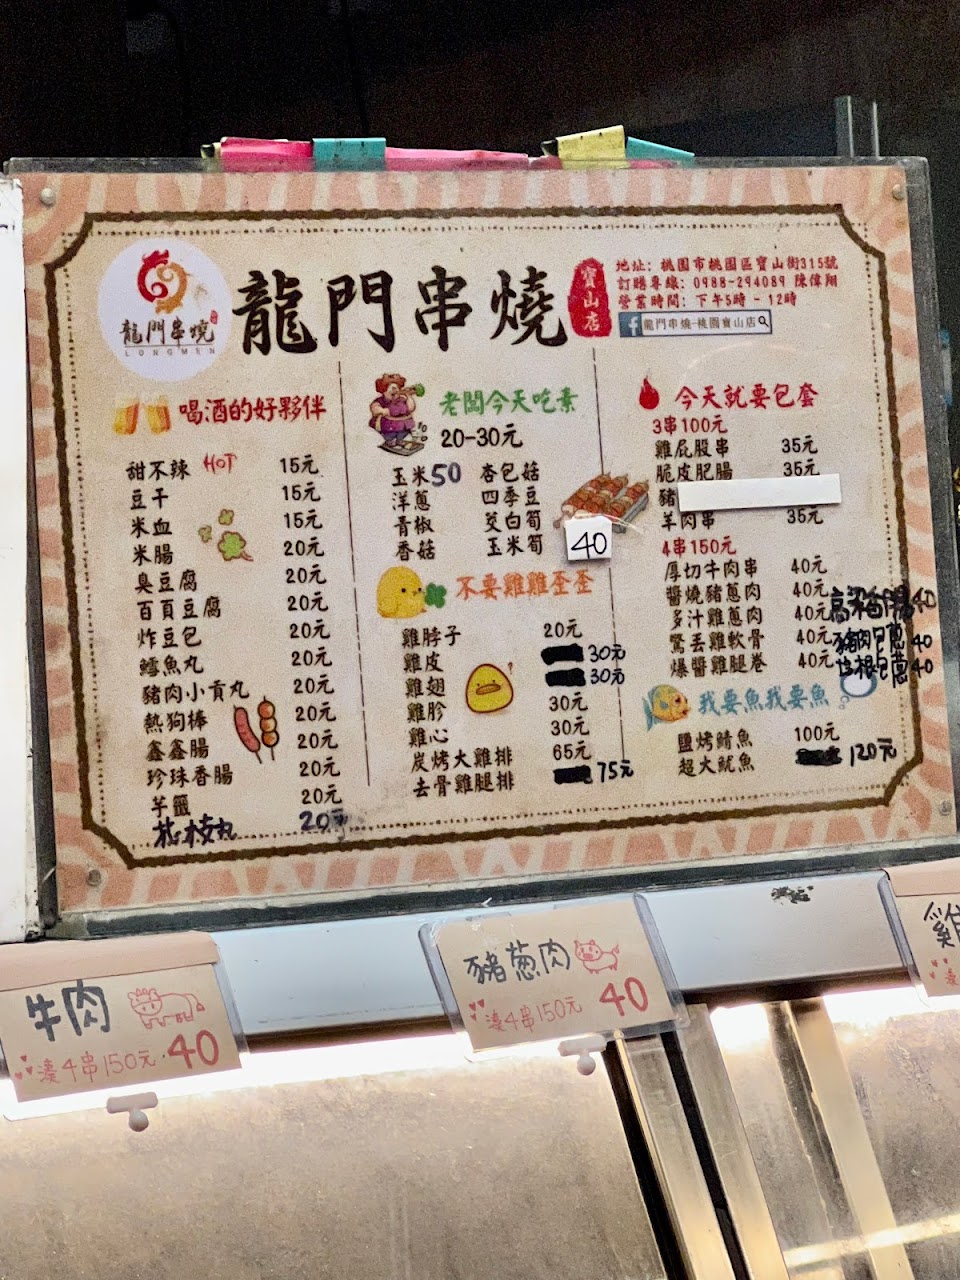 龍門串燒
LONGMEN
龍門串燒
寶山店
地址: 桃園市桃園區寶山街315號
訂購專線: 0988-294089 陳偉翔
營業時間: 下午5時 - 12時
f 龍門串燒-桃園寶山店
喝酒的好夥伴
甜不辣 HOT 15元
豆干 15元
米血 15元
米腸 20元
臭豆腐 20元
百頁豆腐 20元
炸豆包 20元
鱈魚丸 20元
豬肉小貢丸 20元
熱狗棒 20元
鑫鑫腸 20元
珍珠香腸 20元
芋籤 20元
花枝丸 20元
老闆今天吃素
20-30元
玉米50 杏包菇
洋蔥 四季豆
青椒 茭白筍
香菇 玉米筍 40
不要雞雞歪歪
雞脖子 20元
雞皮 30元
雞翅 30元
雞胗 30元
雞心 30元
炭烤大雞排 65元
去骨雞腿排 75元
今天就要包套
3串100元
雞屁股串 35元
脆皮肥腸 35元
豬
羊肉串 35元
4串150元
厚切牛肉串 40元
醬燒豬蔥肉 40元
多汁雞蔥肉 40元
驚丟雞軟骨 40元
爆醬雞腿卷 40元
高粱香腸 40
豬肉包蔥 40
培根包蔥 40
我要魚我要魚
鹽烤鯖魚 100元
超大魷魚 120元
牛肉
湊4串150元 40
豬蔥肉
湊4串150元 40
雞
湊